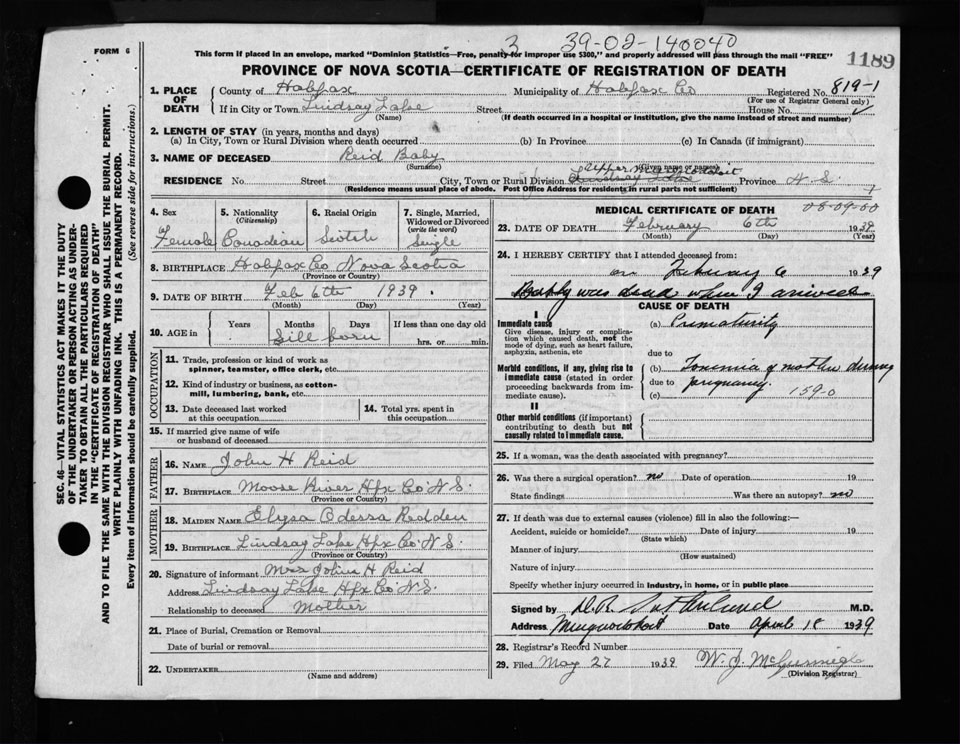 FORM 6
3 39-02-140040
This form if placed in an envelope, marked "Dominion Statistics—Free, penalty for improper use $300," and properly addressed will pass through the mail "FREE"
1189
PROVINCE OF NOVA SCOTIA—CERTIFICATE OF REGISTRATION OF DEATH
1. PLACE OF DEATH
County of Halifax Municipality of Halifax Co Registered No. 819-1
(For use of Registrar General only)
If in City or Town Lindsay Lake Street House No.
(Name) (If death occurred in a hospital or institution, give the name instead of street and number)
2. LENGTH OF STAY (in years, months and days)
(a) In City, Town or Rural Division where death occurred (b) In Province (c) In Canada (if immigrant)
3. NAME OF DECEASED Reid Baby
(Surname) (Given name or names)
Upper Musquodoboit
RESIDENCE No. Street City, Town or Rural Division Lindsay Lake Province N.S.
(Residence means usual place of abode. Post Office Address for residents in rural parts not sufficient)
4. Sex
Female
5. Nationality
(Citizenship)
Canadian
6. Racial Origin
Scotch
7. Single, Married, Widowed or Divorced
(write the word)
Single
8. BIRTHPLACE Halifax Co Nova Scotia
(Province or Country)
9. DATE OF BIRTH Feb 6th 1939.
(Month) (Day) (Year)
10. AGE in
Years Months Days If less than one day old
Still born hrs. or min.
OCCUPATION
11. Trade, profession or kind of work as spinner, teamster, office clerk, etc.
12. Kind of industry or business, as cotton-mill, lumbering, bank, etc.
13. Date deceased last worked at this occupation
14. Total yrs. spent in this occupation
15. If married give name of wife or husband of deceased
FATHER
16. NAME John H Reid
17. BIRTHPLACE Moose River Hfx Co N.S.
(Province or Country)
MOTHER
18. MAIDEN NAME Elysa Odessa Redden
19. BIRTHPLACE Lindsay Lake Hfx Co N.S.
(Province or Country)
20. Signature of informant Mrs John H Reid
Address Lindsay Lake Hfx Co N.S.
Relationship to deceased Mother
21. Place of Burial, Cremation or Removal
Date of burial or removal
22. UNDERTAKER
(Name and address)
MEDICAL CERTIFICATE OF DEATH
08-09-00
23. DATE OF DEATH February 6th 1939
(Month) (Day) (Year)
24. I HEREBY CERTIFY that I attended deceased from:
on February 6 1939
Baby was dead when I arrived
CAUSE OF DEATH
I
Immediate cause
Give disease, injury or complication which caused death, not the mode of dying, such as heart failure, asphyxia, asthenia, etc
(a) Prematurity
due to
Morbid conditions, if any, giving rise to immediate cause (stated in order proceeding backwards from immediate cause).
(b) Toxemia of mother during
due to pregnancy.
(c) 159-0
II
Other morbid conditions (if important) contributing to death but not causally related to immediate cause.
25. If a woman, was the death associated with pregnancy?
26. Was there a surgical operation? no Date of operation 19
State findings Was there an autopsy? no
27. If death was due to external causes (violence) fill in also the following:—
Accident, suicide or homicide? Date of injury 19
(State which)
Manner of injury
(How sustained)
Nature of injury
Specify whether injury occurred in industry, in home, or in public place
Signed by D.R. Sutherland M.D.
Address Musquodoboit Date April 18 1939
28. Registrar's Record Number
29. Filed May 27 1939
(Division Registrar)
SEC. 46—VITAL STATISTICS ACT MAKES IT THE DUTY
OF THE UNDERTAKER OR PERSON ACTING AS UNDER-
TAKER TO OBTAIN ALL THE PARTICULARS REQUIRED
IN THE "CERTIFICATE OF REGISTRATION OF DEATH"
AND TO FILE THE SAME WITH THE DIVISION REGISTRAR WHO SHALL ISSUE THE BURIAL PERMIT.
WRITE PLAINLY WITH UNFADING INK. THIS IS A PERMANENT RECORD.
Every item of information should be carefully supplied. (See reverse side for instructions.)